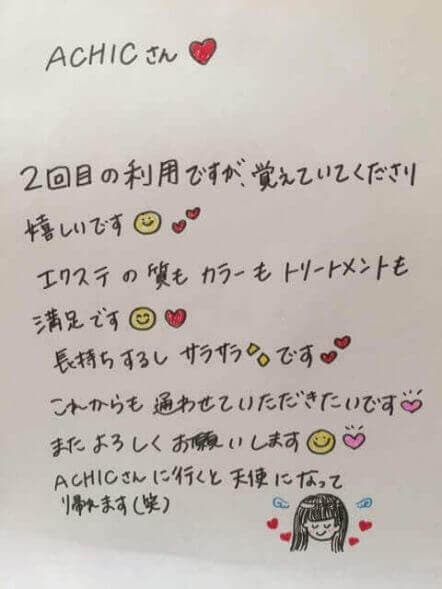 ACHICさん
2回目の利用ですが、覚えていてくださり
嬉しいです
エクステの質もカラーもトリートメントも
満足です
長持ちするし サラサラです
これからも通わせていただきたいです
またよろしくお願いします
ACHICさんに行くと天使になって
帰れます(笑)